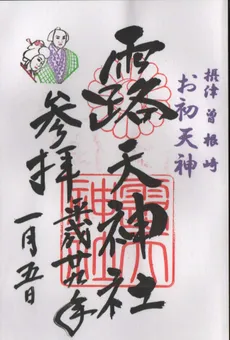 摂津 曽根崎
お初天神
露天神社
参拝
平成廿九年
一月五日
露天
神社